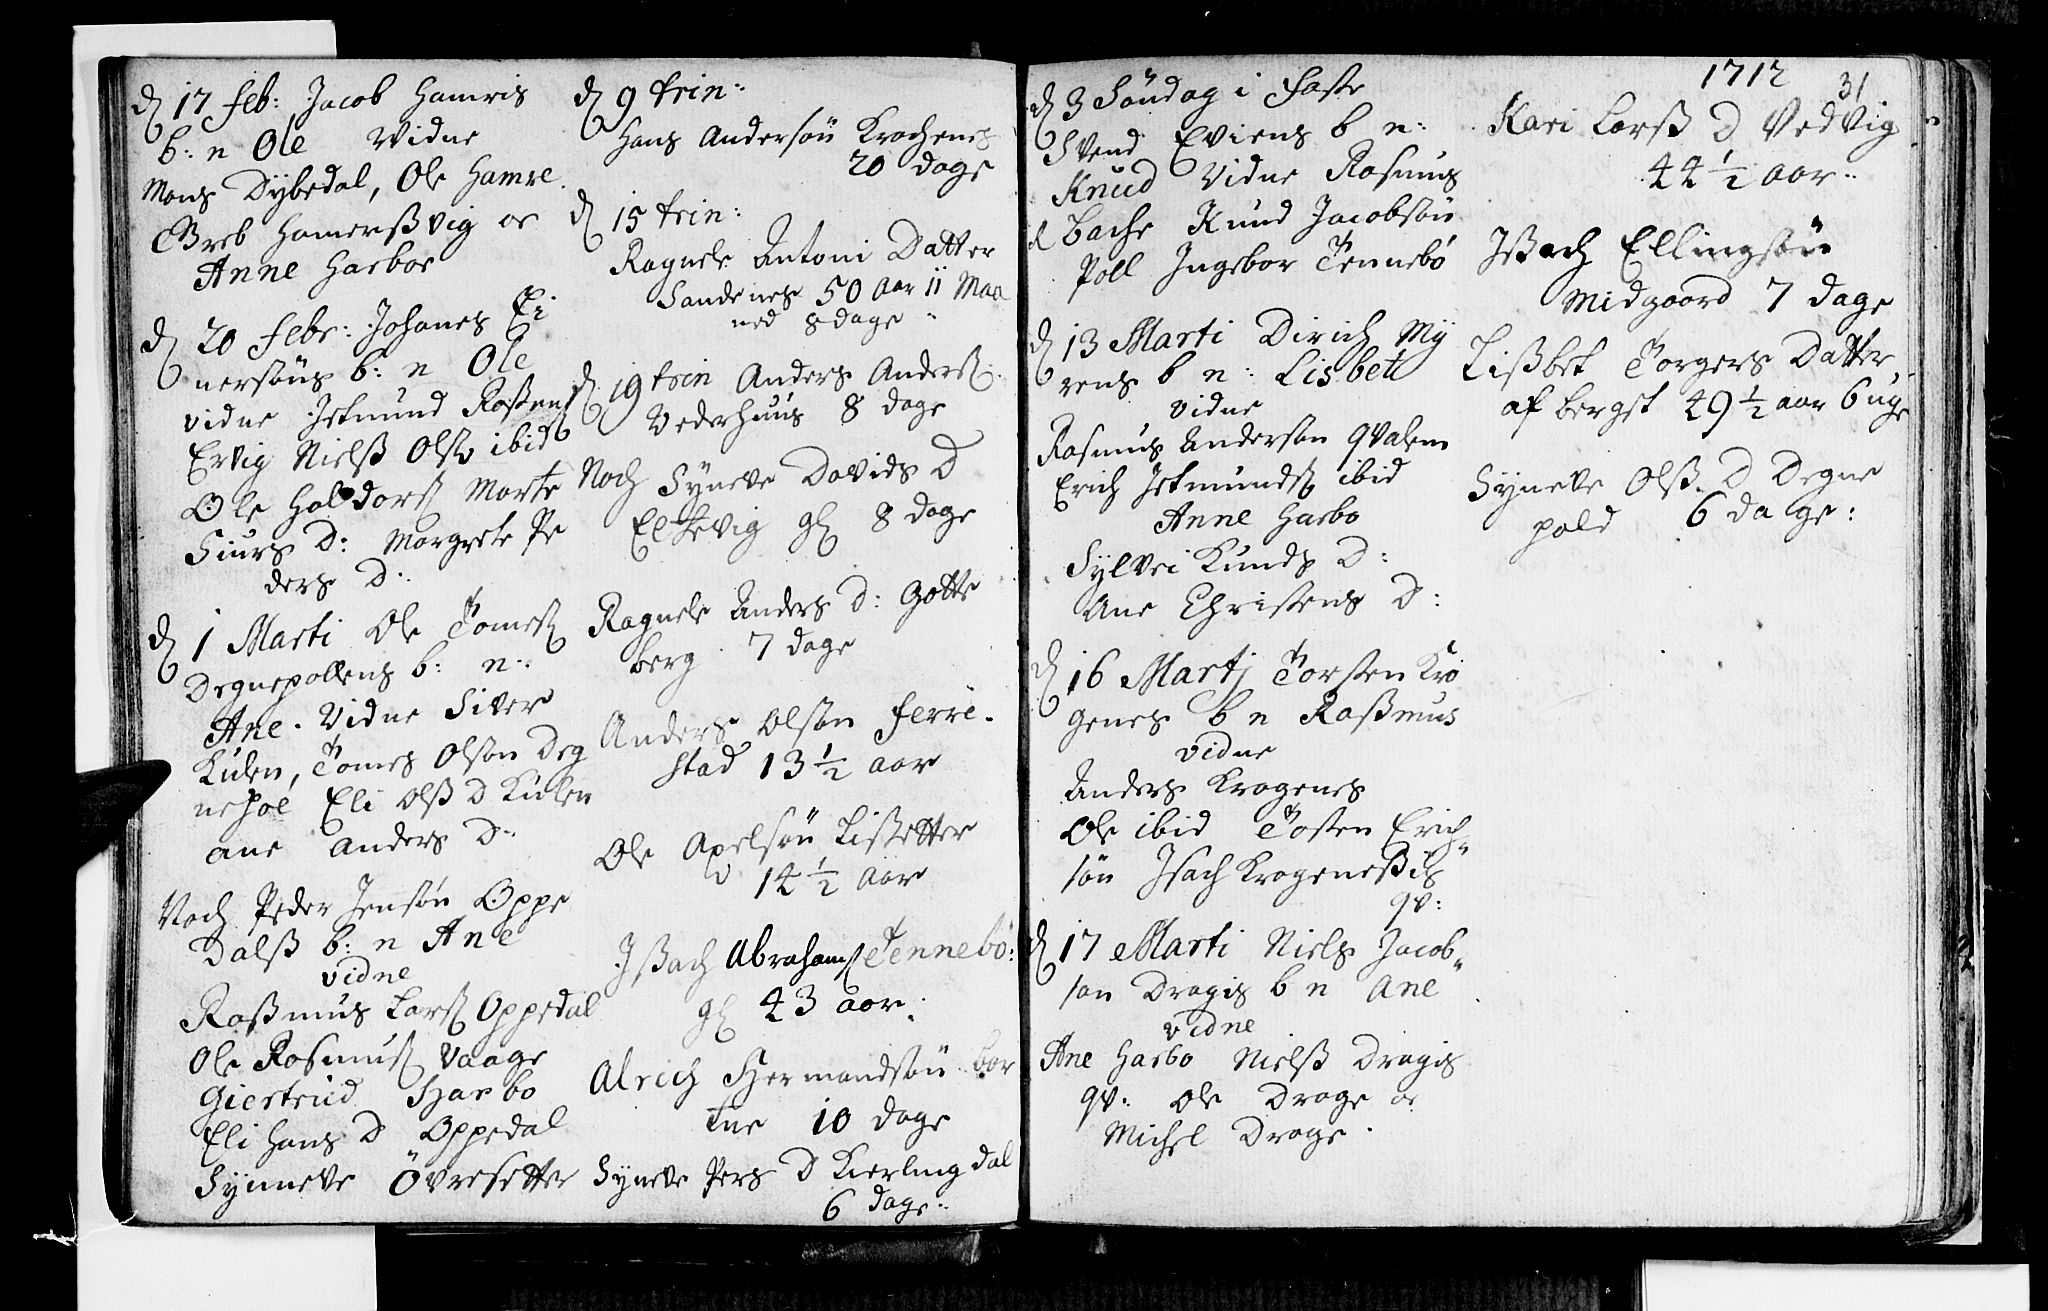 d 17 feb: Jacob Hamris
b: n Ole Vidne
Mons Dybedal, Ole Hamre
Greb Hamerßvig oc
Anne Harboe
d 20 febr: Johanes Ei
nersøns b: n Ole
vidne Jetmund Roßen
Ervig Nielß Olß ibid
Ole Haldorß Morte
Siurs D: Margrete Pe
ders D:
d 1 Marti Ole Tomeß
Degnepollens b: n:
Ane. Vidne Siver
Kulen, Tomes Olson Deg
nepol Eli Olß D Kulen
ane Anders D:
Noch Peder Jensøn Oppe
Dalß b: n Ane
vidne
Raßmus Larß Oppedal
Ole Rasmuß Vaage
Giertrud Harbo
Eli Hans D Oppedal
Synneve Övresetter
d 9 trin:
Hans Andersøn Krochenes
20 dage
d 15 trin:
Ragnele Antoni Datter
Sandenes 50 Aar 11 Maa
ned 8 dage
d 19 trin Anders Anderß
Vederhuus 8 dage
Noch Syneve Davids D
Eltevig gl 8 dage
Ragnele Anders D: Gotte
berg 7 dage
Anders Olsøn ferre
stad 13 ½ aar
Ole Axelsøn Lißetter
14 ½ Aar
Jßach Abrahamß Tennebö:
gl 43 aar:
Alrich Hermandsøn bor
tne 10 dage
Syneve Pers D Kierling dal
6 dage:
d 3 Søndag i Faste
Svend Eviens b n:
Knud Vidne Rasmus
Bache Knud Jacobsøn
Poll Ingebor Tennebö
d 13 Marti Dirich My
rens b n: Lisbet
vidne
Rasmus Anderson qvalem
Erich Jetmundß ibid
Anne Harbo
Sylvei Kunds D:
Ane Christens D:
d 16 Martj Torsten Kro
genes b n Raßmus
vidne
Anders Krogenes
Ole ibid Tosten Erich
søn Jsach Krogeneßis
qv:
d 17 Marti Niels Jacob
søn Dragis b n Ane
vidne
Ane Harbo Nielß Dragis
qv: Ole Drage oc
Michel Drage.
1712
31
Kari Larß D Vedvig
44 ½ aar:
Jßach Ellingsøn
Midgaard 7 dage
Lißbet Torgers Datter
af bergst 49 ½ aar 6 uge
Syneve Olß. D Degne
pold 6 dage: